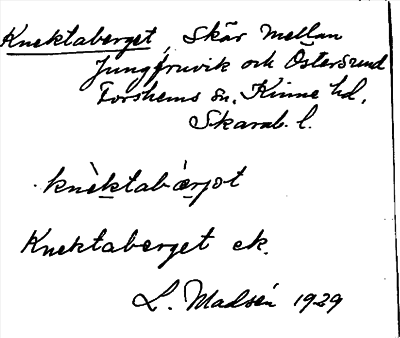 Knektaberget, Skär mellan
Jungfruvik och Östersund
Forshems sn. Kinne hd.
Skarab. l.
knèktabærjət
Knektaberget ek.
L. Madsén 1929